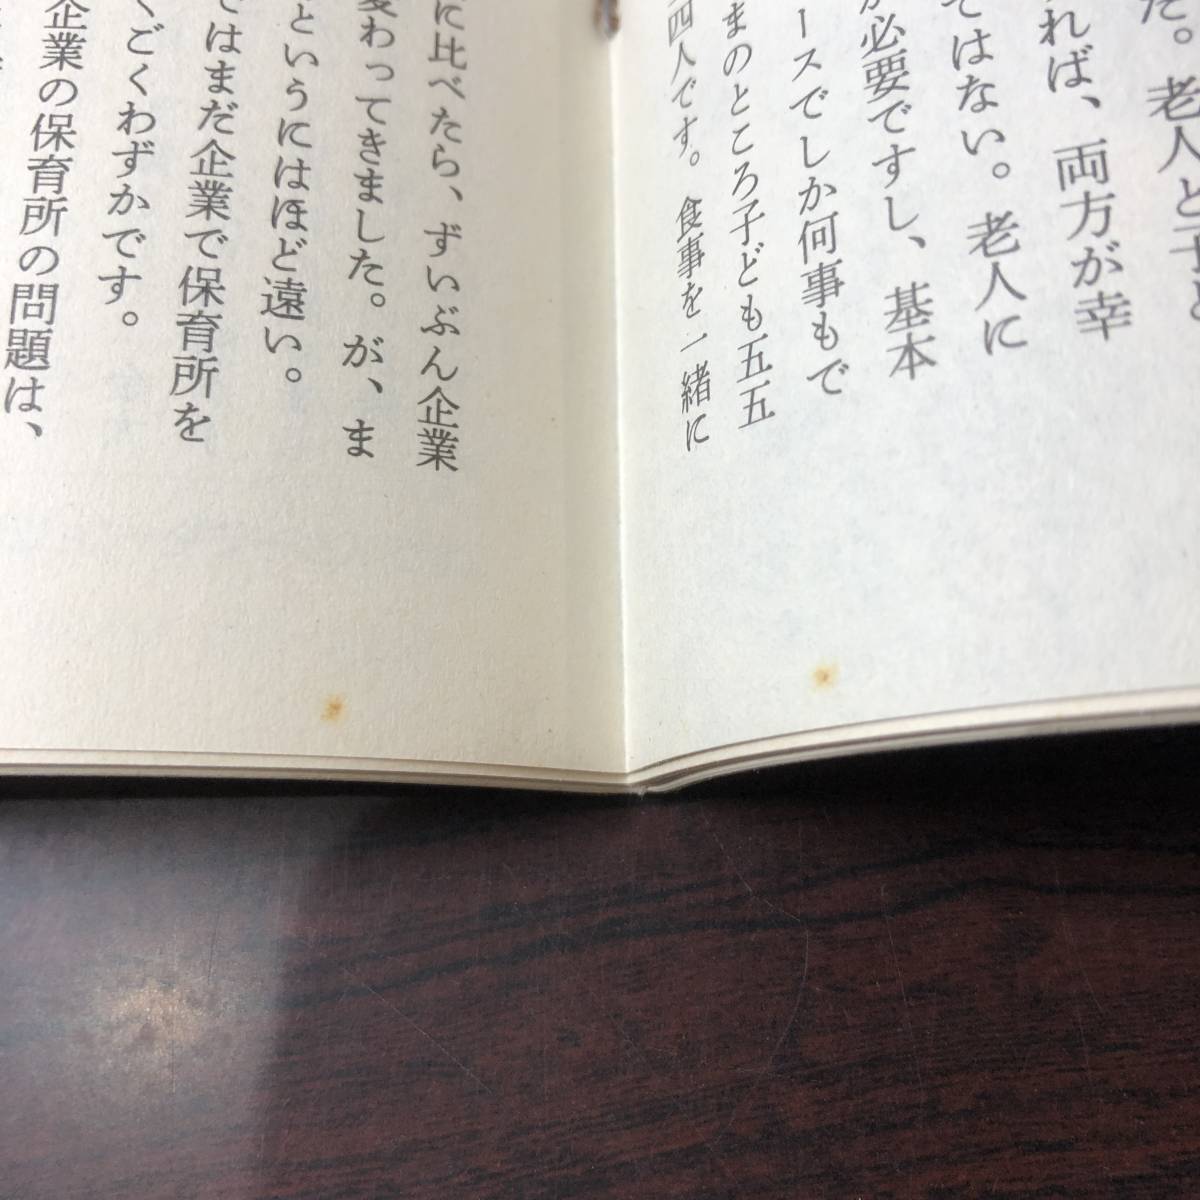 た。老人と子ど
れば、両方が幸
ではない。老人に
が必要ですし、基本
ースでしか何事もで
まのところ子ども五五
四人です。食事を一緒に
に比べたら、ずいぶん企業
変わってきました。が、ま
というにはほど遠い。
ではまだ企業で保育所を
くごくわずかです。
企業の保育所の問題は、